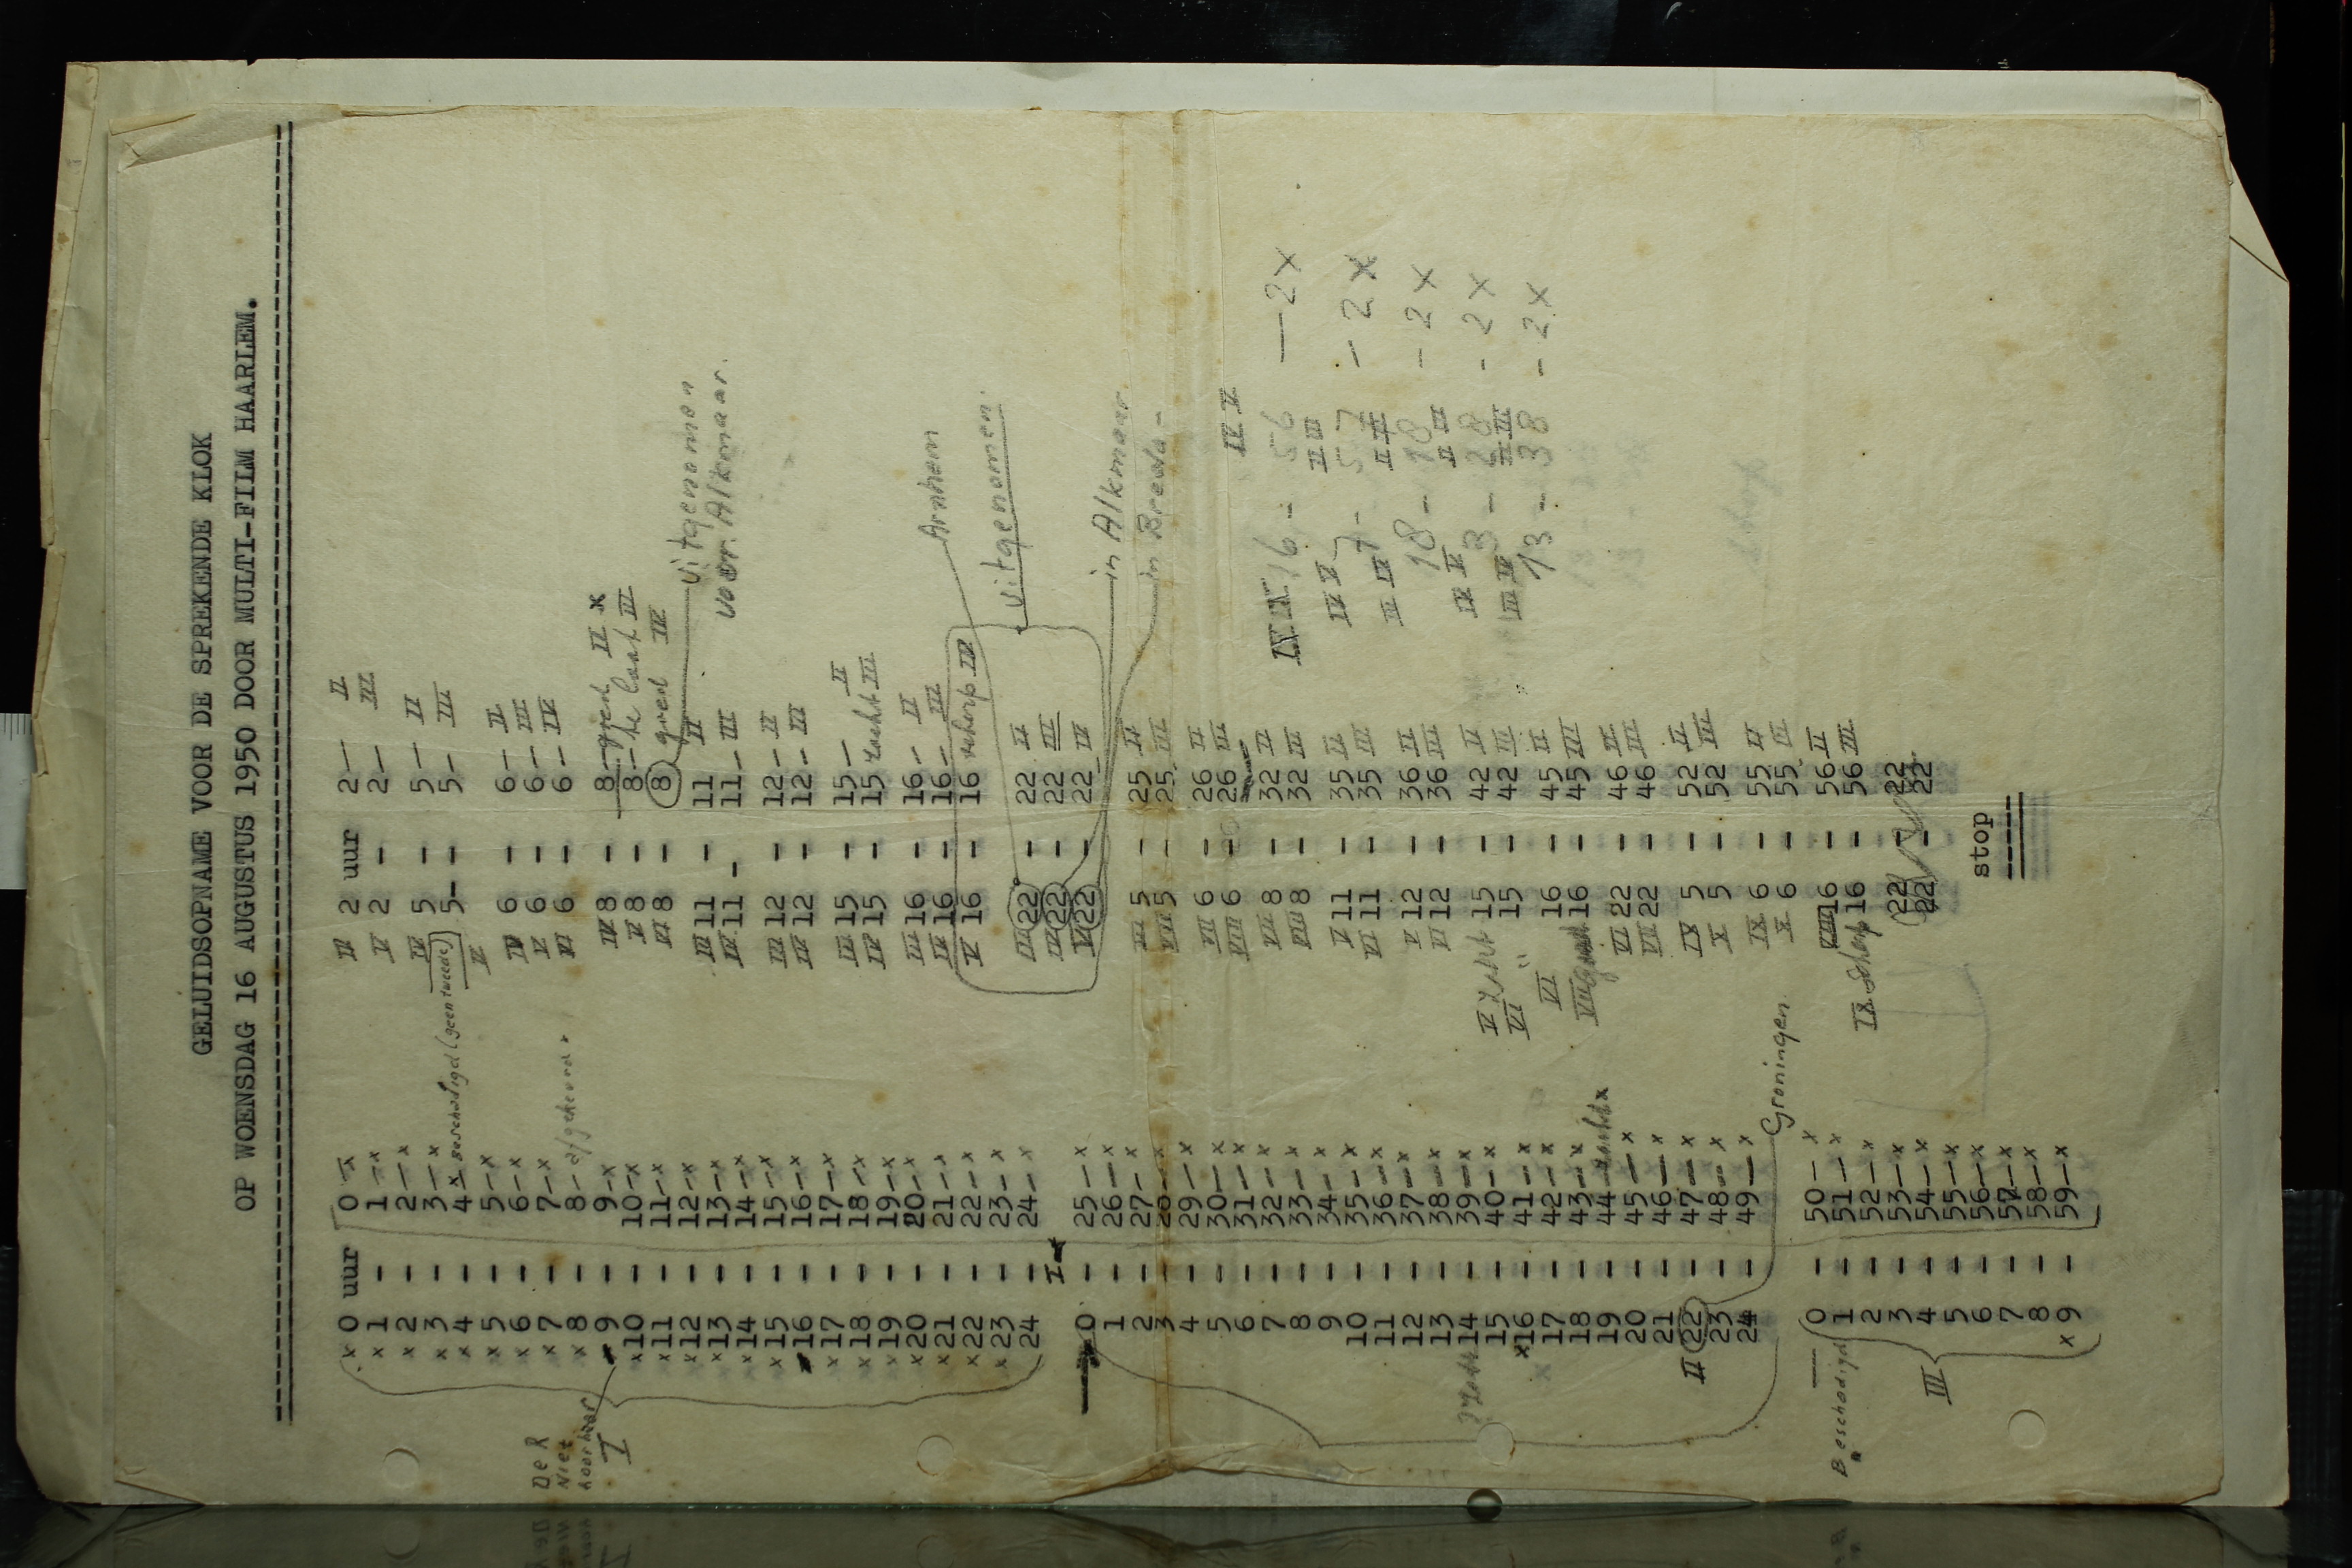 GELUIDSOPNAME VOOR DE SPREKENDE KLOK
OP WOENSDAG 16 AUGUSTUS 1950 DOOR MULTI-FILM HAARLEM.
x 0 uur 0 — x
x 1 — 1 — x
x 2 — 2 — x
x 3 — 3 — x
x 4 — 4 — x Beschadigd (geen tweede)
x 5 — 5 — x
x 6 — 6 — x
x 7 — 7 — x
x 8 — 8 —
De R
niet
hoorbaar
I
9 — 9 — x
x 10 — 10 — x
x 11 — 11 — x
x 12 — 12 — x
x 13 — 13 — x
x 14 — 14 — x
x 15 — 15 — x
x 16 — 16 — x
x 17 — 17 — x
x 18 — 18 — x
x 19 — 19 — x
x 20 — 20 — x
x 21 — 21 — x
x 22 — 22 — x
x 23 — 23 — x
24 — 24 — x
I
0 — 25 — x
1 — 26 — x
2 — 27 — x
3 — 28 — x
4 — 29 — x
5 — 30 — x
6 — 31 — x
7 — 32 — x
8 — 33 — x
9 — 34 — x
10 — 35 — x
11 — 36 — x
12 — 37 — x
13 — 38 — x
14 — 39 — x
15 — 40 — x
x 16 — 41 — x
17 — 42 — x
18 — 43 — x
19 — 44 — zacht x
20 — 45 — x
21 — 46 — x
II 22 — 47 — x
23 — 48 — x
24 — 49 — x
Groningen
Beschadigd
0 — 50 — x
1 — 51 — x
2 — 52 — x
3 — 53 — x
III 4 — 54 — x
5 — 55 — x
6 — 56 — x
7 — 57 — x
8 — 58 — x
x 9 — 59 — x
IV 2 uur 2 — II
V 2 — 2 — III
IV 5 — 5 — II
V 5 — 5 — III
IV 6 — 6 — II
V 6 — 6 — III
VI 6 — 6 — IV
IV 8 — 8 — goed II x
V 8 — 8 — te laat III
VI 8 — 8 goed IV
uitgenomen
voor Alkmaar.
III 11 — 11 II
IV 11 — 11 — III
III 12 — 12 — II
IV 12 — 12 — III
III 15 — 15 — II
IV 15 — 15 zacht III
III 16 — 16 — II
IV 16 — 16 — III
V 16 — 16 scherp IV
Arnhem
uitgenomen.
III 22 — 22 II
IV 22 — 22 III
V 22 — 22 — IV
in Alkmaar
in Breda —
VII 5 — 25 II
VIII 5 — 25 III
VII 6 — 26 II
VIII 6 — 26 III
VII 8 — 32 II
VIII 8 — 32 III
V 11 — 35 II
VI 11 — 35 III
V 12 — 36 II
VI 12 — 36 III
V zacht 15 — 42 II
VI " 15 — 42 III
VI 16 — 45 II
VII 16 — 45 III
VI 22 — 46 II
VII 22 — 46 III
IX 5 — 52 II
X 5 — 52 III
IX 6 — 55 II
X 6 — 55 III
VIII 16 — 56 II
IX scherp 16 — 56 III
22 — 22
22 — 22
stop
IV V
16 – 56 — 2x
IV V II III
7 – 57 – 2x
18 – 18 – 2x
IV V II III
3 – 28 – 2x
13 – 38 – 2x